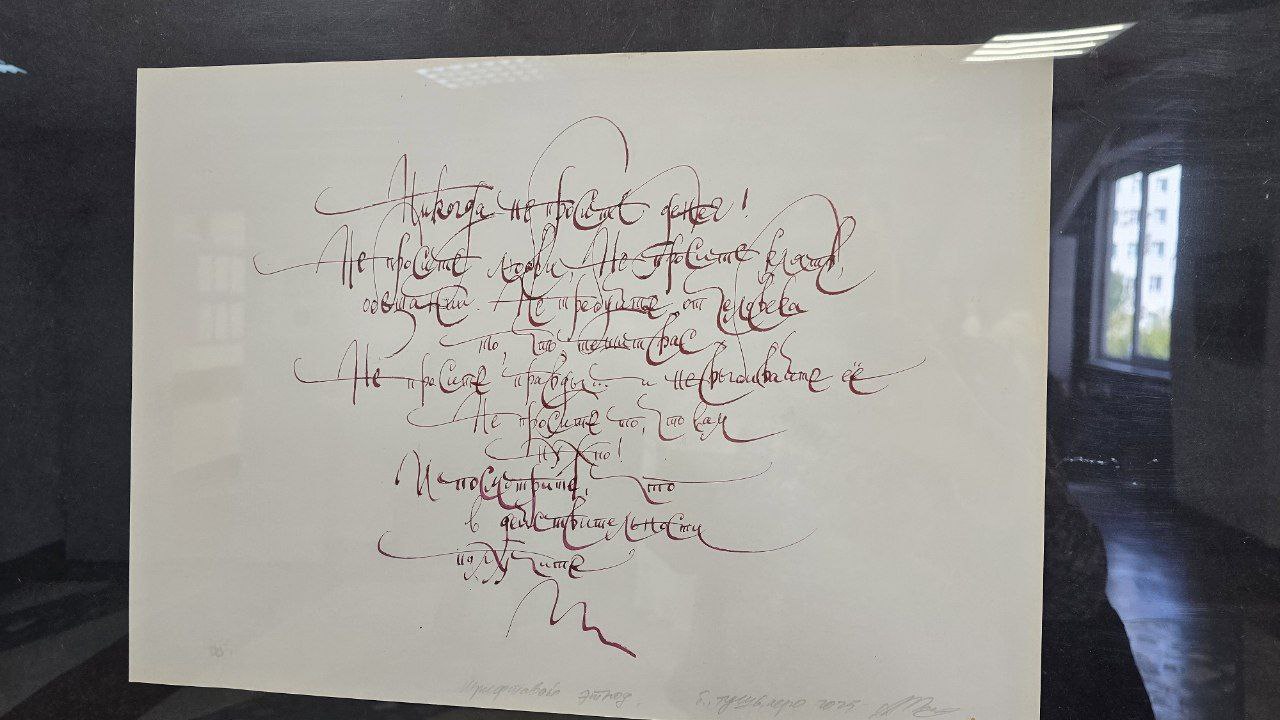 Никогда не просите денег!
Не просите любви, Не просите клятв,
обещаний. Не требуйте от человека
то, что тешит вас
Не просите правду... и не выдавливайте её
Не просите то, что вам
нужно!
И посмотрите, что
в действительности
получите
Шрифтовой этюд.